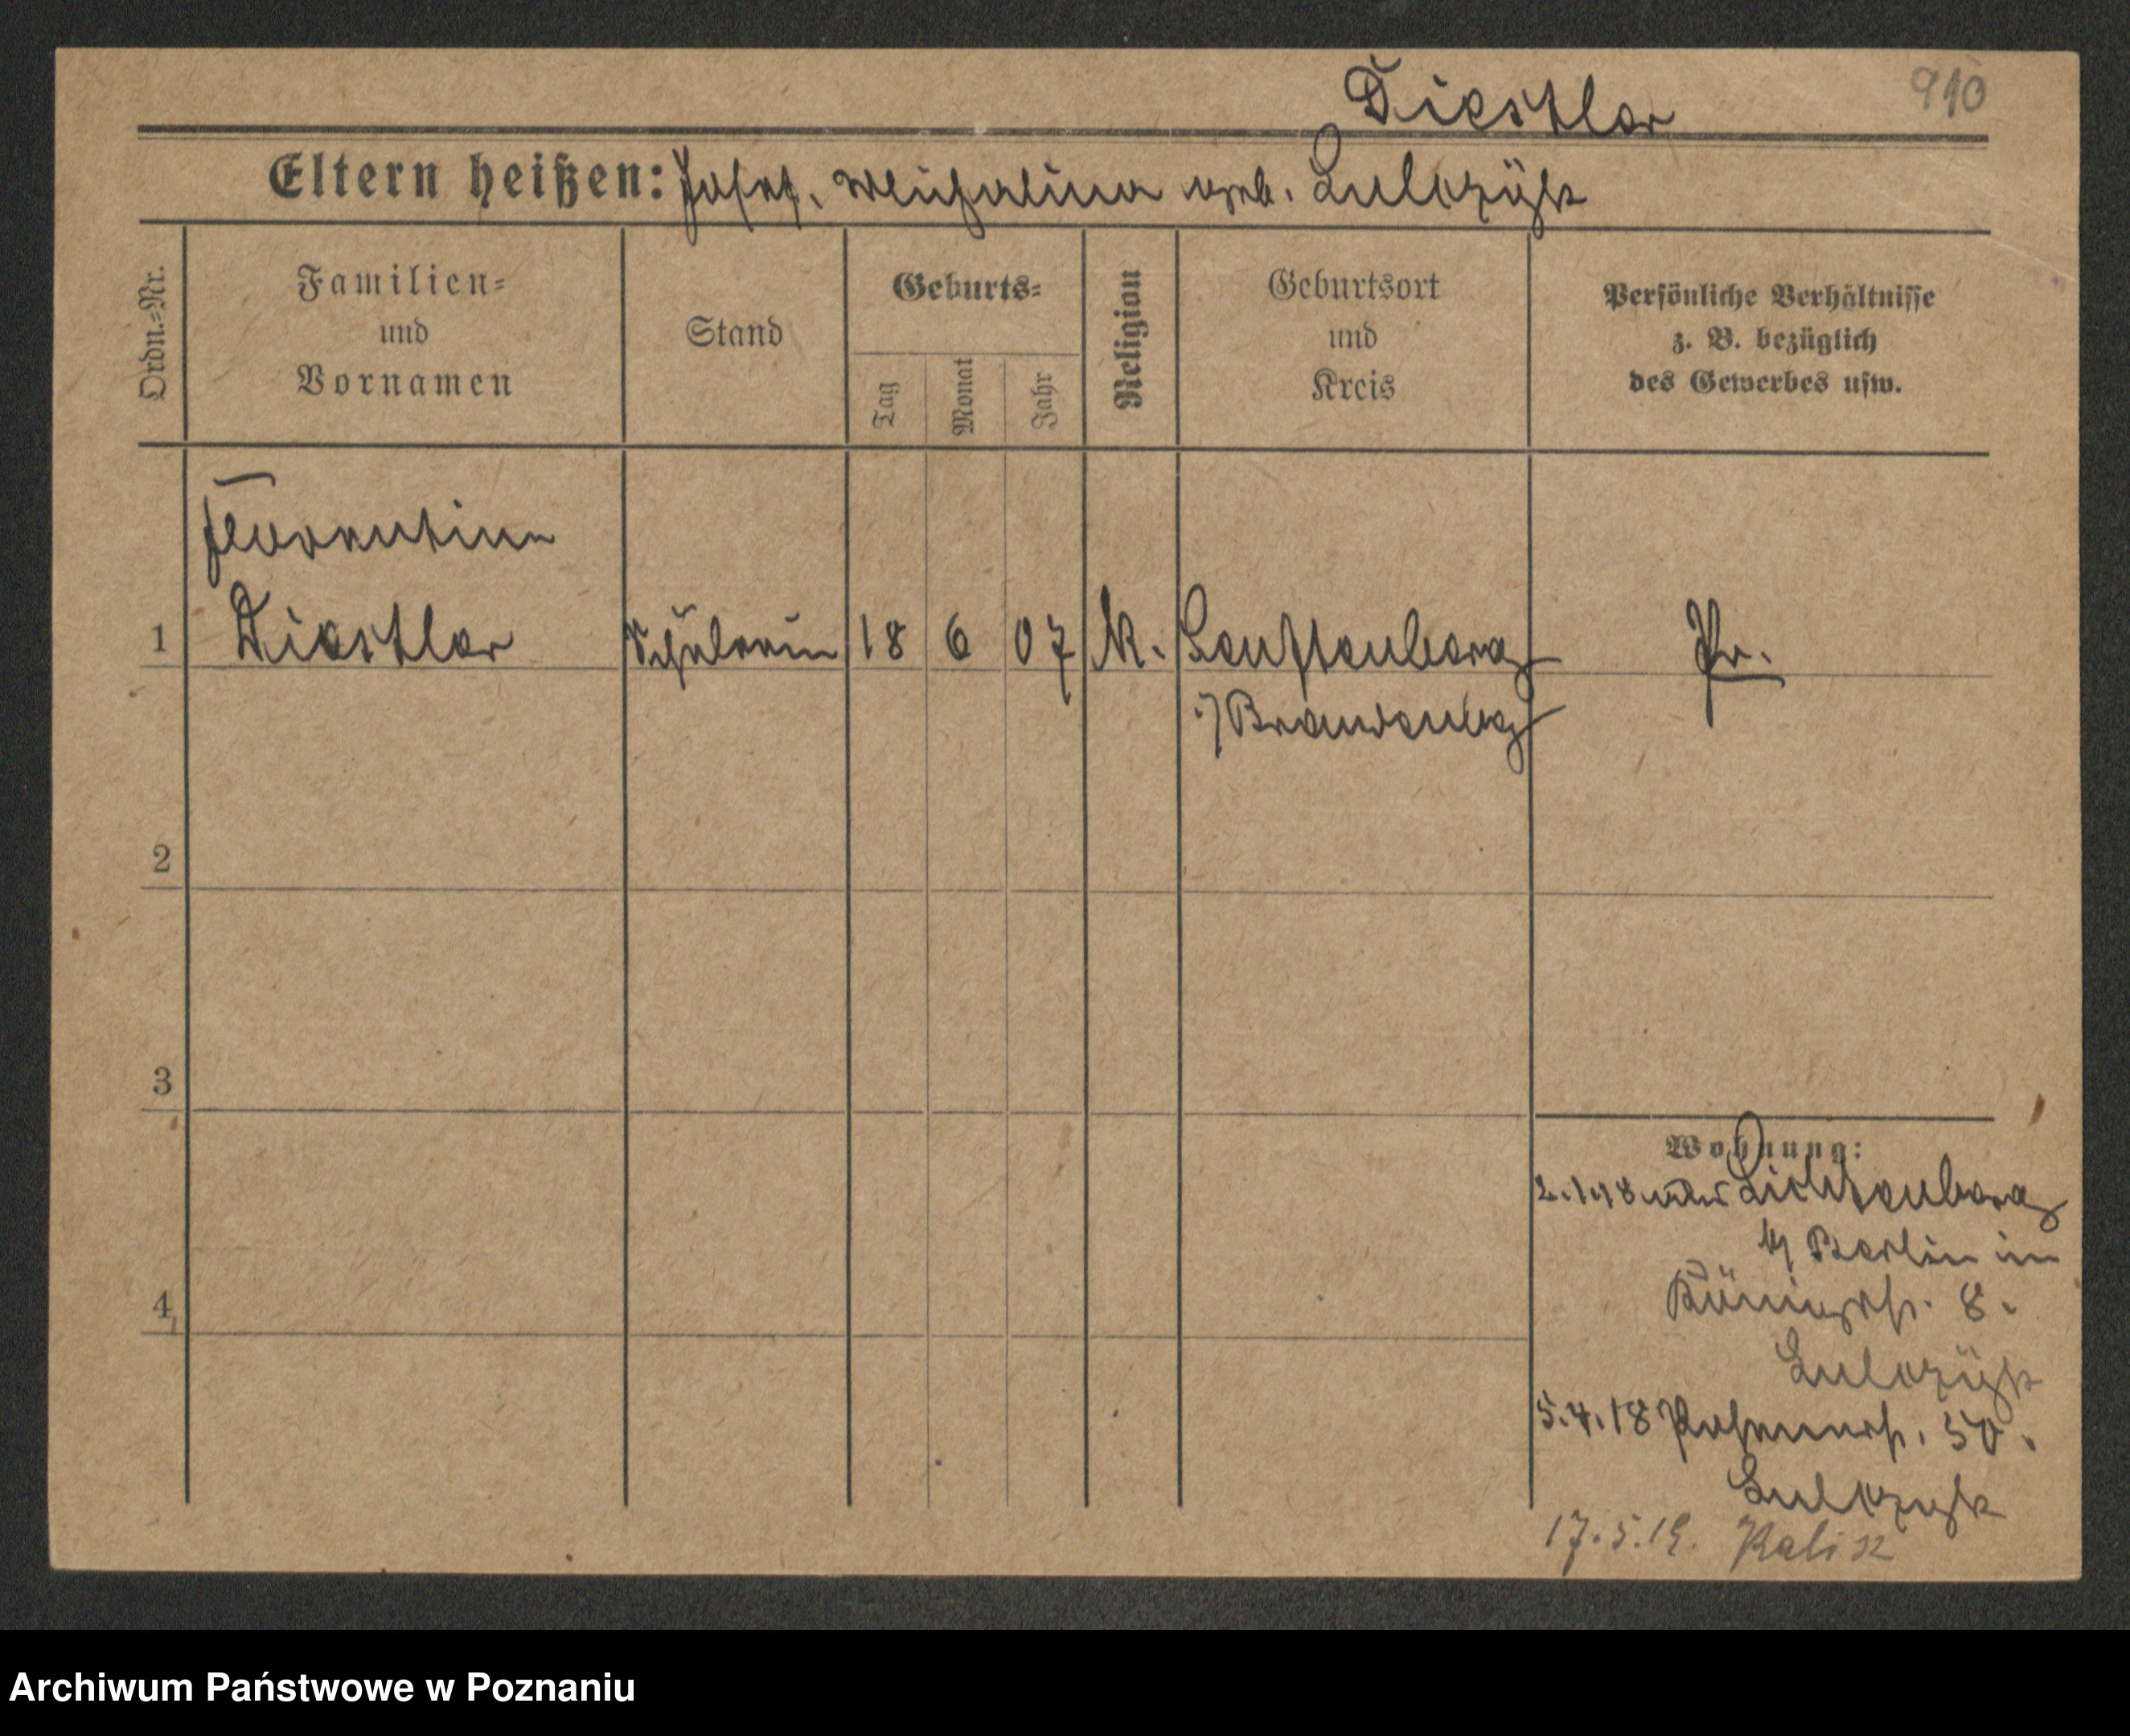 Diestler
910
Eltern heißen: Josef, geb.
Ordn.=Nr.
Familien=
und
Vornamen
Stand
Geburts=
Tag
Monat
Jahr
Religion
Geburtsort
und
Kreis
Persönliche Verhältnisse
z. B. bezüglich
des Gewerbes usw.
Florentine
1 Diestler Schülerin 18 6 07 K. Senftenberg Pr.
i/ Brandenbg
2
3
Wohnung:
2.1.18 Lichtenberg
b/ Berlin
4 8.
5.4.18 50.
17.5.19. Kalisz
Archiwum Państwowe w Poznaniu